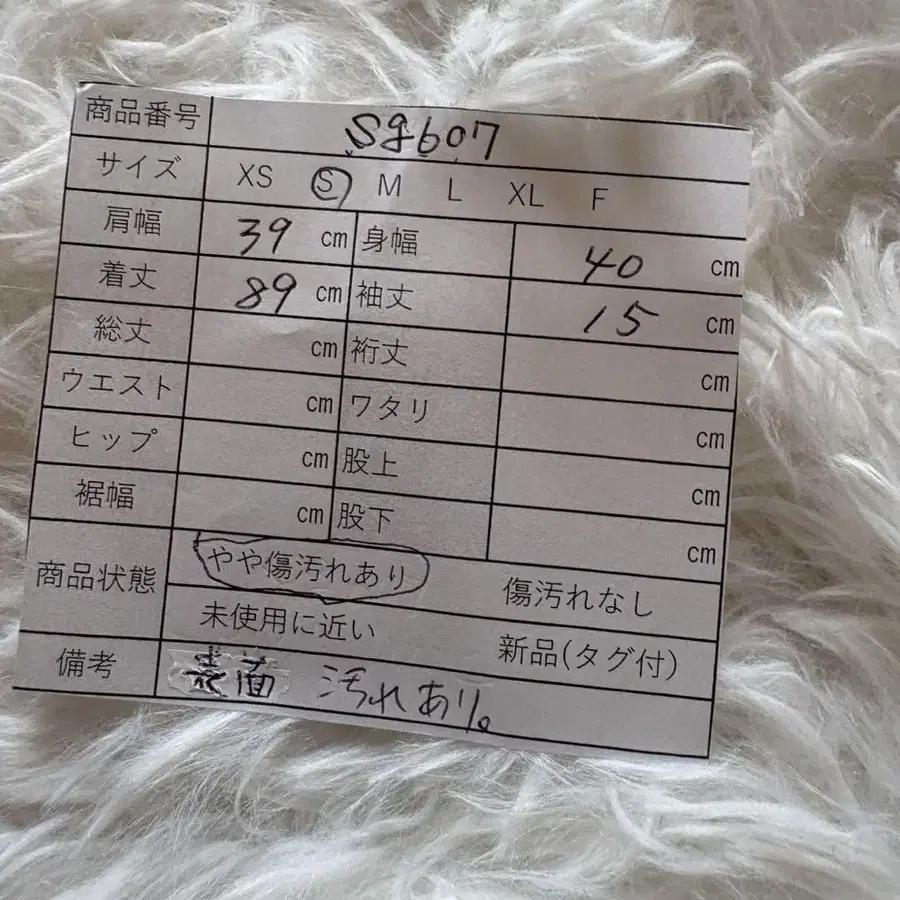 商品番号 Sg607
サイズ XS S M L XL F
肩幅 39 cm 身幅 40 cm
着丈 89 cm 袖丈 15 cm
総丈 cm 裄丈 cm
ウエスト cm ワタリ cm
ヒップ cm 股上 cm
裾幅 cm 股下 cm
商品状態 やや傷汚れあり 傷汚れなし
未使用に近い 新品(タグ付)
備考 表面 汚れあり。